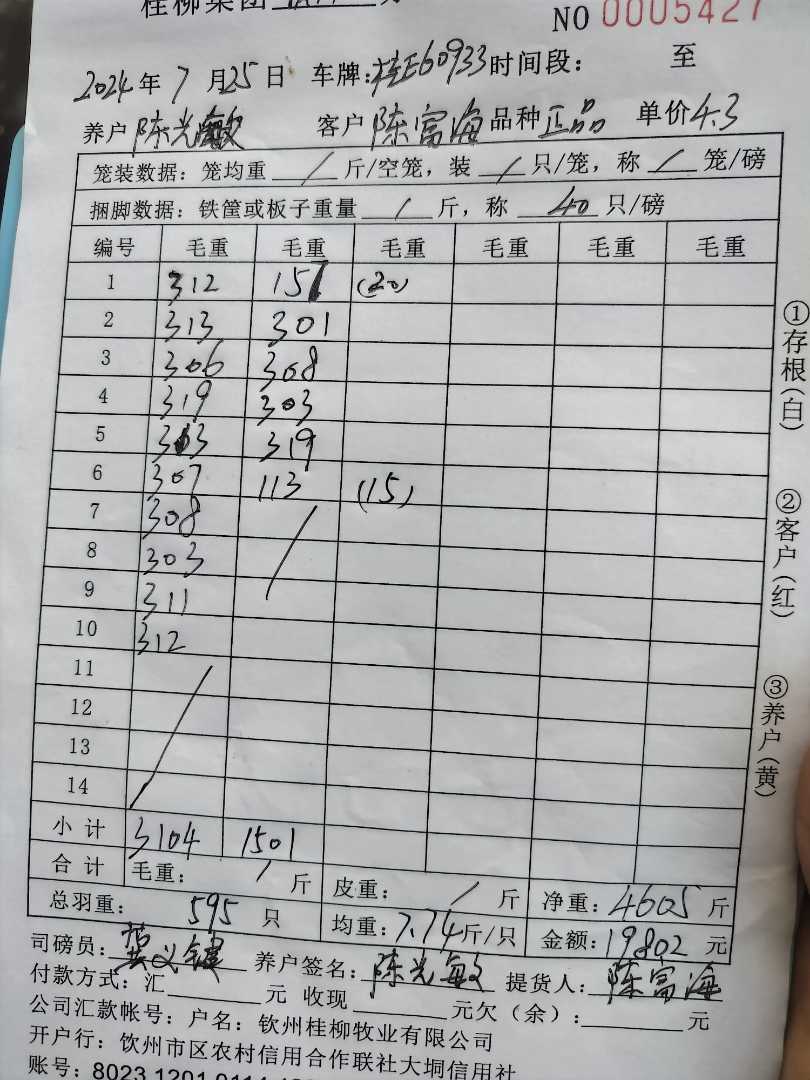 桂柳集团
NO 0005427
2024年7月25日 车牌:桂E60933时间段: 至
养户陈光敏 客户陈富海品种正品 单价4.3
笼装数据: 笼均重 / 斤/空笼, 装 / 只/笼, 称 / 笼/磅
捆脚数据: 铁筐或板子重量 / 斤, 称 40 只/磅
编号 毛重 毛重 毛重 毛重 毛重 毛重
1 312 157 (20)
2 313 301
3 306 308
4 319 303
5 313 319
6 307 113 (15)
7 308
8 303
9 311
10 312
11
12
13
14
小计 3104 1501
合计 毛重: / 斤 皮重: / 斤 净重: 4605 斤
总羽重: 595 只 均重: 7.74斤/只 金额: 19802 元
司磅员: 义键 养户签名: 陈光敏 提货人: 陈富海
付款方式: 汇 元 收现 元欠(余): 元
公司汇款帐号: 户名: 钦州桂柳牧业有限公司
开户行: 饮州市区农村信用合作联社大垌信用社
账号: 8023 1201 0114
①存根(白)
②客户(红)
③养户(黄)